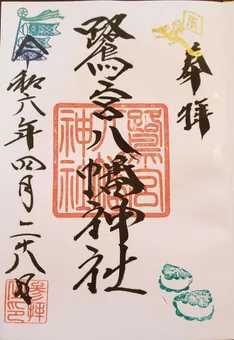 奉拝
鷺宮八幡神社
鷺宮
八幡
神社
令和六年四月二十八日
参拝